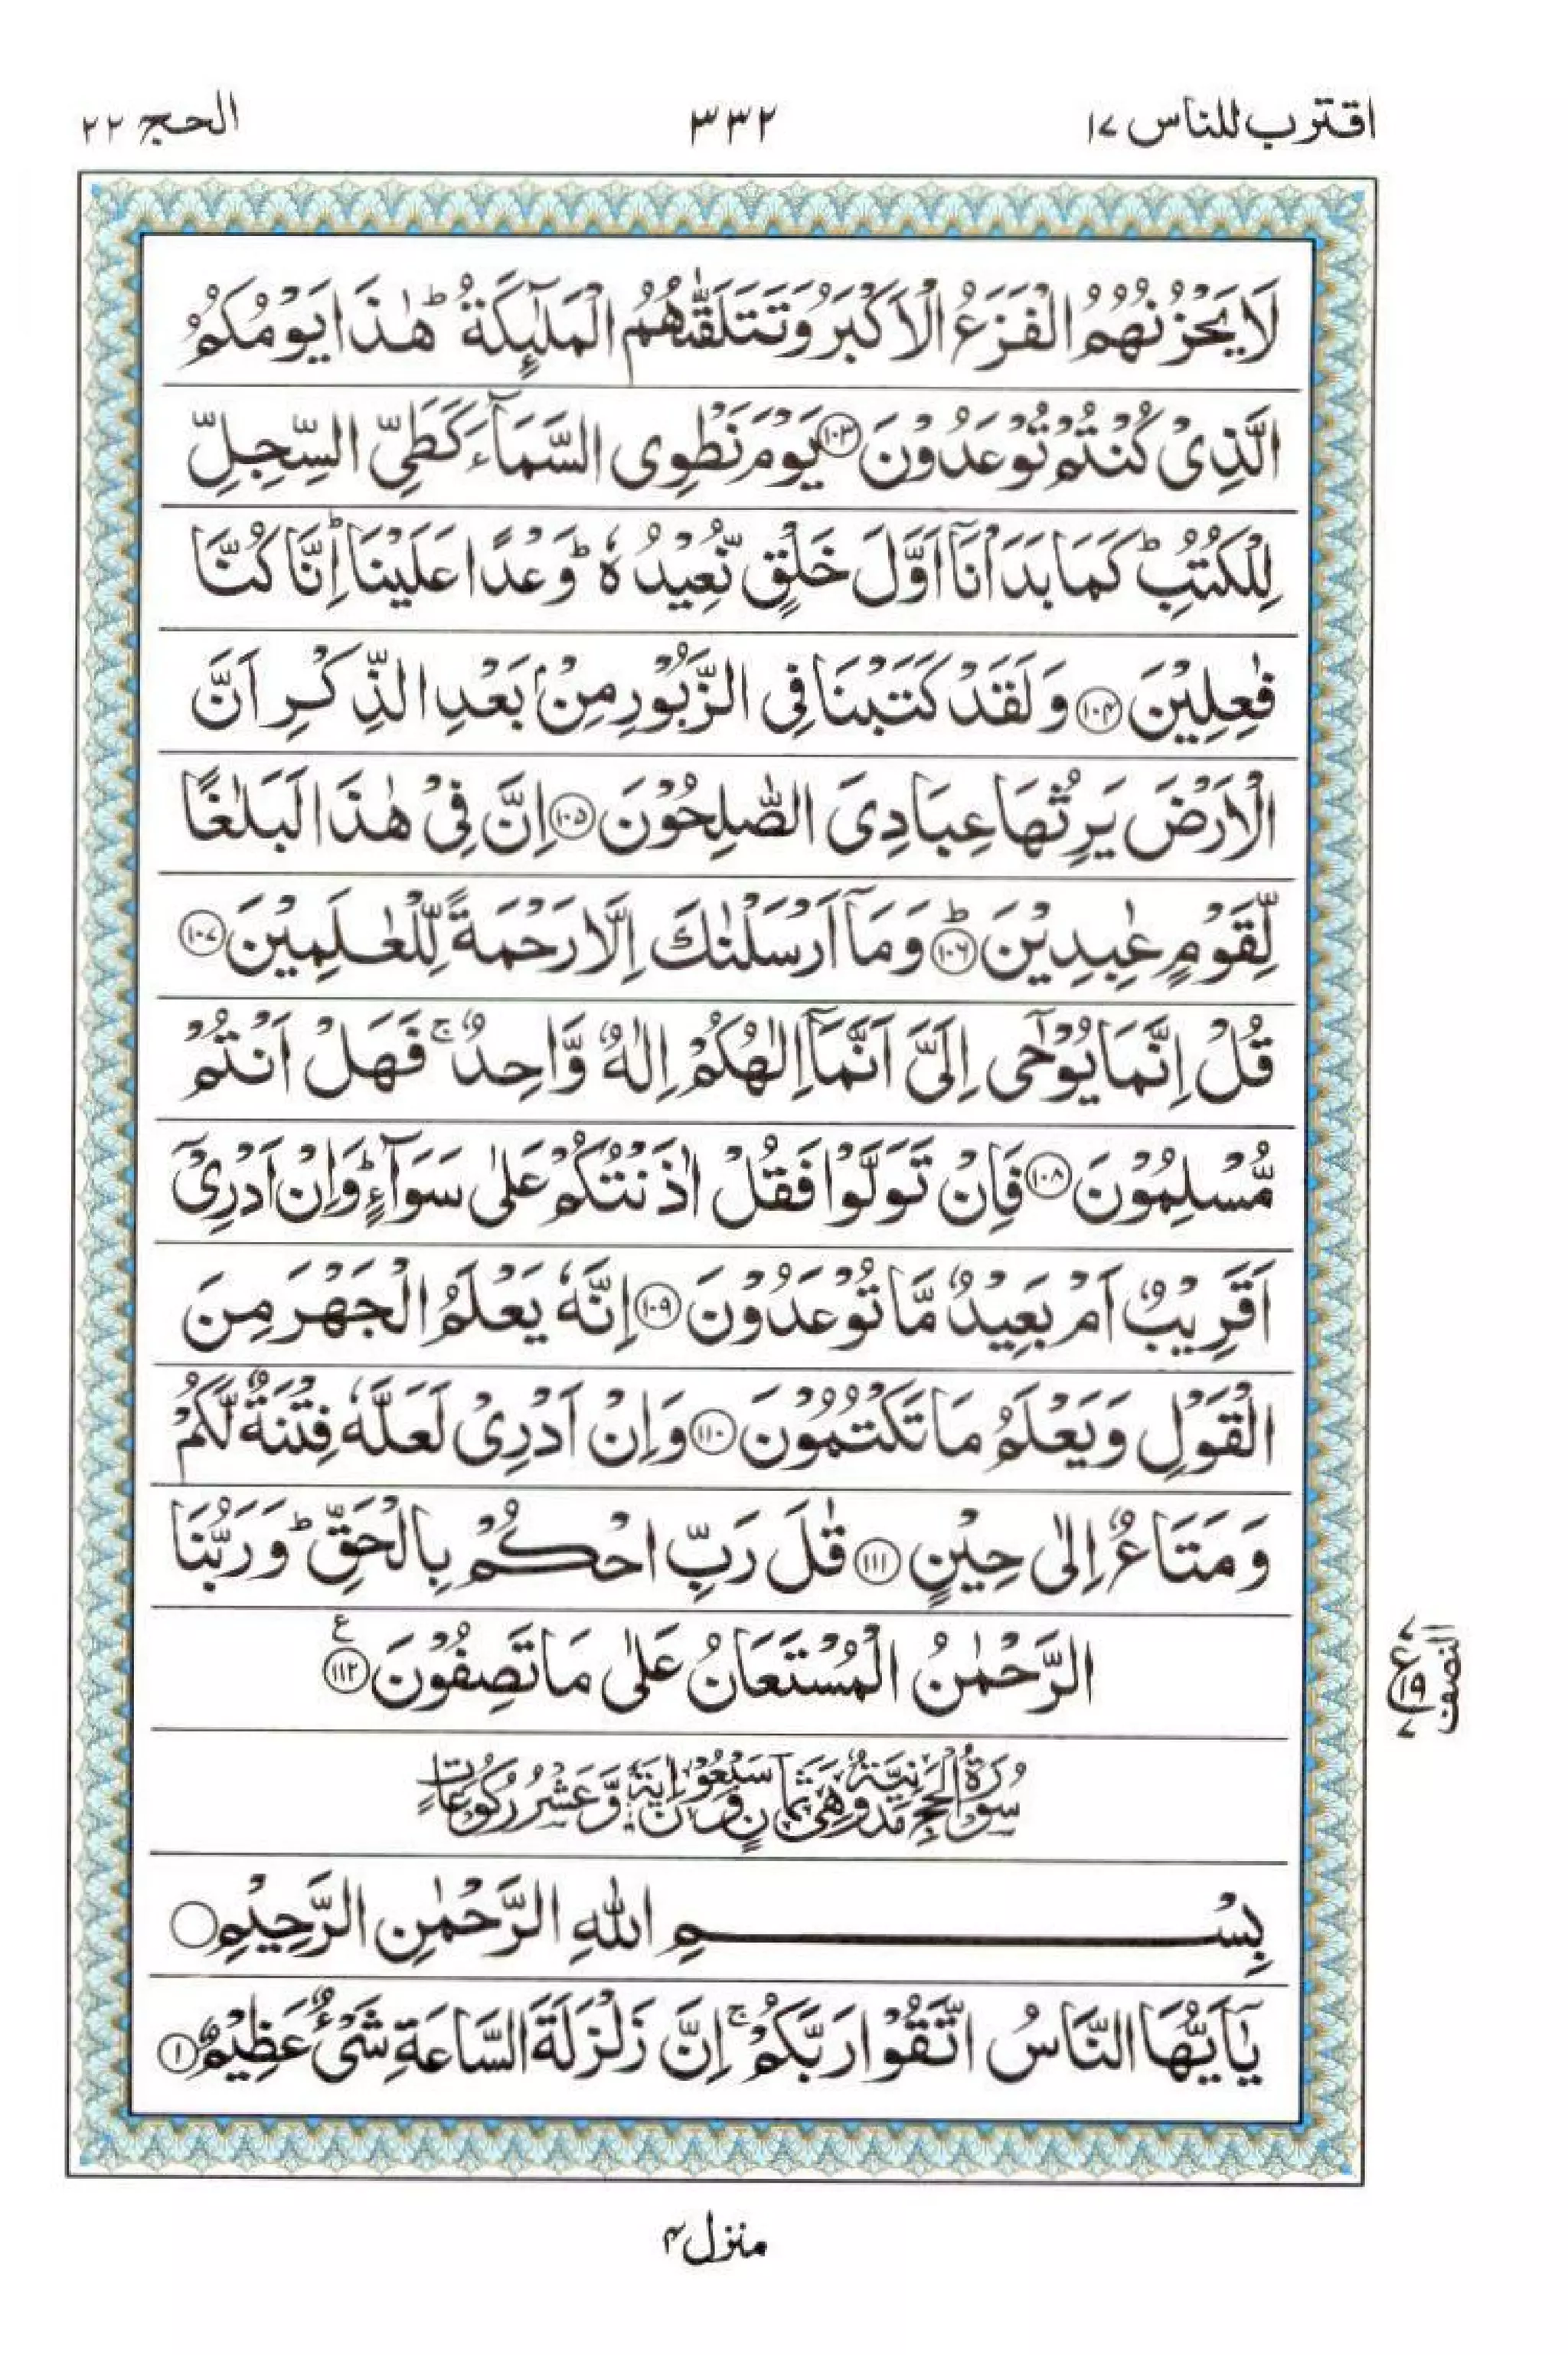 اقترب للناس ۱۷
۳۳۲
الحج ۲۲
لَا يَحْزُنُهُمُ الْفَزَعُ الْاَكْبَرُ وَتَتَلَقّٰىهُمُ الْمَلٰٓئِكَةُ ؕ هٰذَا يَوْمُكُمُ
الَّذِىْ كُنْتُمْ تُوْعَدُوْنَ ﴿۱۰۳﴾ يَوْمَ نَطْوِى السَّمَآءَ كَطَىِّ السِّجِلِّ
لِلْكُتُبِ ؕ كَمَا بَدَاْنَاۤ اَوَّلَ خَلْقٍ نُّعِيْدُهٗ ؕ وَعْدًا عَلَيْنَا ؕ اِنَّا كُنَّا
فٰعِلِيْنَ ﴿۱۰۴﴾ وَلَقَدْ كَتَبْنَا فِى الزَّبُوْرِ مِنْۢ بَعْدِ الذِّكْرِ اَنَّ
الْاَرْضَ يَرِثُهَا عِبَادِىَ الصّٰلِحُوْنَ ﴿۱۰۵﴾ اِنَّ فِىْ هٰذَا لَبَلٰغًا
لِّقَوْمٍ عٰبِدِيْنَ ؕ﴿۱۰۶﴾ وَمَاۤ اَرْسَلْنٰكَ اِلَّا رَحْمَةً لِّلْعٰلَمِيْنَ ﴿۱۰۷﴾
قُلْ اِنَّمَا يُوْحٰۤى اِلَىَّ اَنَّمَاۤ اِلٰهُكُمْ اِلٰهٌ وَّاحِدٌ ۚ فَهَلْ اَنْتُمْ
مُّسْلِمُوْنَ ﴿۱۰۸﴾ فَاِنْ تَوَلَّوْا فَقُلْ اٰذَنْتُكُمْ عَلٰى سَوَآءٍ ؕ وَاِنْ اَدْرِىْۤ
اَقَرِيْبٌ اَمْ بَعِيْدٌ مَّا تُوْعَدُوْنَ ﴿۱۰۹﴾ اِنَّهٗ يَعْلَمُ الْجَهْرَ مِنَ
الْقَوْلِ وَيَعْلَمُ مَا تَكْتُمُوْنَ ﴿۱۱۰﴾ وَاِنْ اَدْرِىْ لَعَلَّهٗ فِتْنَةٌ لَّكُمْ
وَمَتَاعٌ اِلٰى حِيْنٍ ﴿۱۱۱﴾ قٰلَ رَبِّ احْكُمْ بِالْحَقِّ ؕ وَرَبُّنَا
الرَّحْمٰنُ الْمُسْتَعَانُ عَلٰى مَا تَصِفُوْنَ ﴿۱۱۲﴾ ع
النصف
ع ۱۹ ۷ ۷
سُوْرَةُ الْحَجِّ مَدَنِيَّةٌ وَّهِىَ ثَمَانٍ وَّسَبْعُوْنَ اٰيَةً وَّعَشْرُ رُكُوْعَاتٍ
بِسْمِ اللهِ الرَّحْمٰنِ الرَّحِيْمِ
يٰۤاَيُّهَا النَّاسُ اتَّقُوْا رَبَّكُمْ ۚ اِنَّ زَلْزَلَةَ السَّاعَةِ شَىْءٌ عَظِيْمٌ ﴿۱﴾
منزل ۴